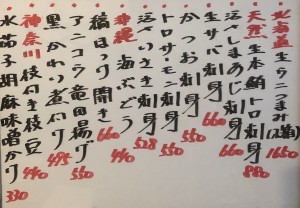 北海道 生ウニつまみ(2貫) 1650
天然 生本鮪トロ刺身 880
活しまあじ刺身 660
生サバ刺身 660
かつお刺身 550
トロサーモン刺身 550
活いさき刺身 528
沖縄 海ぶどう 440
縞ほっけ開き 660
アンコウ竜田揚げ 550
黒かわり煮付け 495
神奈川 枝付き枝豆 440
水茄子胡麻味噌かけ 330